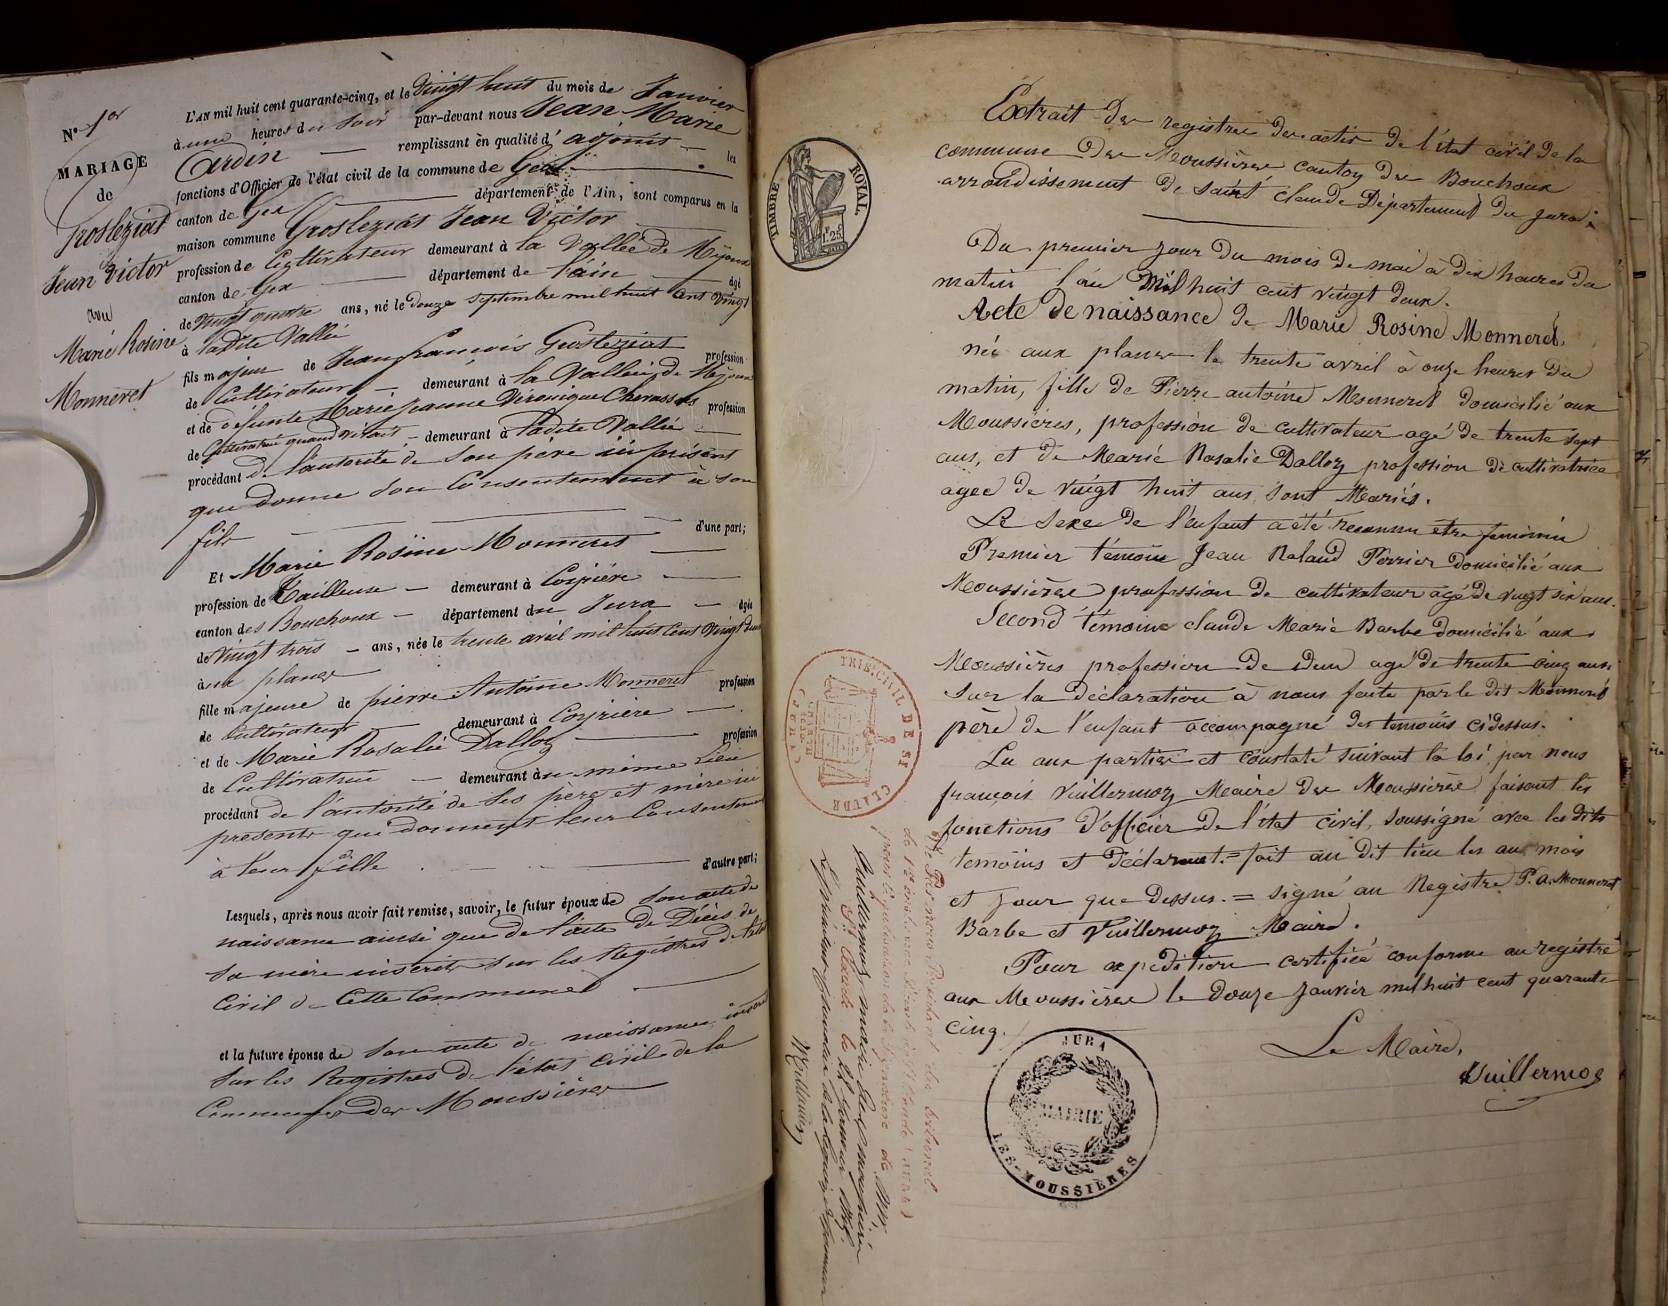 N° 1er
MARIAGE
de
Grosleziat
Jean Victor
avec
Marie Rosine
Monneret
L'AN mil huit cent quarante-cinq, et le vingt huit du mois de Janvier
à une heures du soir par-devant nous Jean Marie
Cardin — remplissant en qualité d'adjoint — les
fonctions d'Officier de l'état civil de la commune de Gex
canton de Gex — département de l'Ain, sont comparus en la
maison commune Grosleziat Jean Victor
profession de Cultivateur demeurant à la Vallée de Mijoux
canton de Gex — département de l'ain — âgé
de vingt quatre ans, né le douze septembre mil huit cent vingt
à ladite Vallée
fils majeur de Jean françois Grosleziat profession
de Cultivateur — demeurant à la Vallée de Mijoux
et de défunte Marie Jeanne Véronique profession
de Cultivatrice quand vivait — demeurant à ladite Vallée —
procédant de l'autorité de Son père ici présent
que donne Son Consentement à son
fils — d'une part;
Et Marie Rosine Monneret —
profession de Tailleuse — demeurant à Coyrière —
canton des Bouchoux — département du Jura — âgée
de vingt trois — ans, née le trente avril mil huit cent vingt deux
aux planes
fille majeure de pierre Antoine Monneret profession
de Cultivateur demeurant à Coyriere —
et de Marie Rosalie Dalloz — profession
de Cultivatrice — demeurant au même Lieu
procédant de l'autorité de Ses père et mère ici
présents que donnent leur Consentement
à leur fille — d'autre part;
Lesquels, après nous avoir fait remise, savoir, le futur époux de Son acte de
naissance ainsi que de l'acte de Décès de
Sa mère inscrits Sur les Registres de l'état
Civil de Cette Commune —
et la future épouse de Son acte de naissance inscrit
Sur les Registres de l'état Civil de la
Commune des Moussières
TIMBRE ROYAL
1F.25C.
Extrait des registres des actes de l'état civil de la
commune des Moussières canton des Bouchoux
arrondissement de Saint Claude Département du Jura.
Du premier jour du mois de mai à dix heures du
matin l'an Mil huit cent vingt deux.
Acte de naissance de Marie Rosine Monneret,
née aux planes le trente avril à onze heures du
matin, fille de Pierre antoine Monneret domicilié aux
Moussières, profession de cultivateur agé de trente sept
ans, et de Marie Rosalie Dalloz profession de cultivatrice
agée de vingt huit ans, sont Mariés.
Le Sexe de l'enfant a été reconnu etre féminin
Premier témoin Jean Roland Perrier domicilié aux
Moussières profession de cultivateur agé de vingt six ans.
Second témoins claude Marie Barbe domicilié aux
Moussières profession de idem agé de trente cinq ans
sur la déclaration à nous faite par le dit Monneret
père de l'enfant accompagné des temoins cidessus.
Lu aux parties et constaté suivant la loi, par nous
françois Vuillermoz Maire des Moussières faisant les
fonctions d'officier de l'état civil, soussigné avec les dits
temoins et Déclarant. = fait au dit lieu les an mois
et jour que dessus. = signé au Registre P. A. Monneret
Barbe et Vuillermoz Maire.
Pour expédition certifiée conforme au registre
aux Moussières le Douze Janvier mil huit cent quarante
cinq.
Le Maire,
Vuillermoz
JURA
MAIRIE
LES-MOUSSIÈRES
TRIB. CIVIL DE ST CLAUDE
(JURA)
Vu par nous Président du tribunal
de 1ère
pour légalisation de la signature de Mr
Vuillermoz, maire
St Claude le 14 Janvier 1845